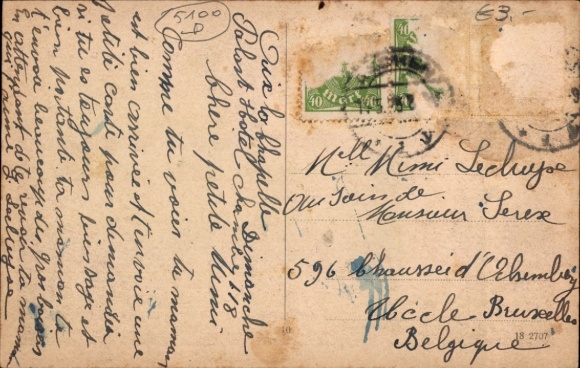 5100
D
€3.-
Aix la Chapelle Dimanche
Palast Hotel Chambre 118
Chère petite Mimi
Comme tu vois ta maman
est bien arrivée et t'envoie une
petite carte pour demander
si tu es toujours bien sage et
bien portante ta maman te
t'envoie beaucoup des gros baisers
En attendant de te revoir ta maman
qui t'aime J Lechuyse
40
40
Mark
40
Mlle Mimi Lechuyse
Au soin de
Monsieur Serex
596 Chaussee d'Alsemberg
Uccle Bruxelles
Belgique
10
18-2707